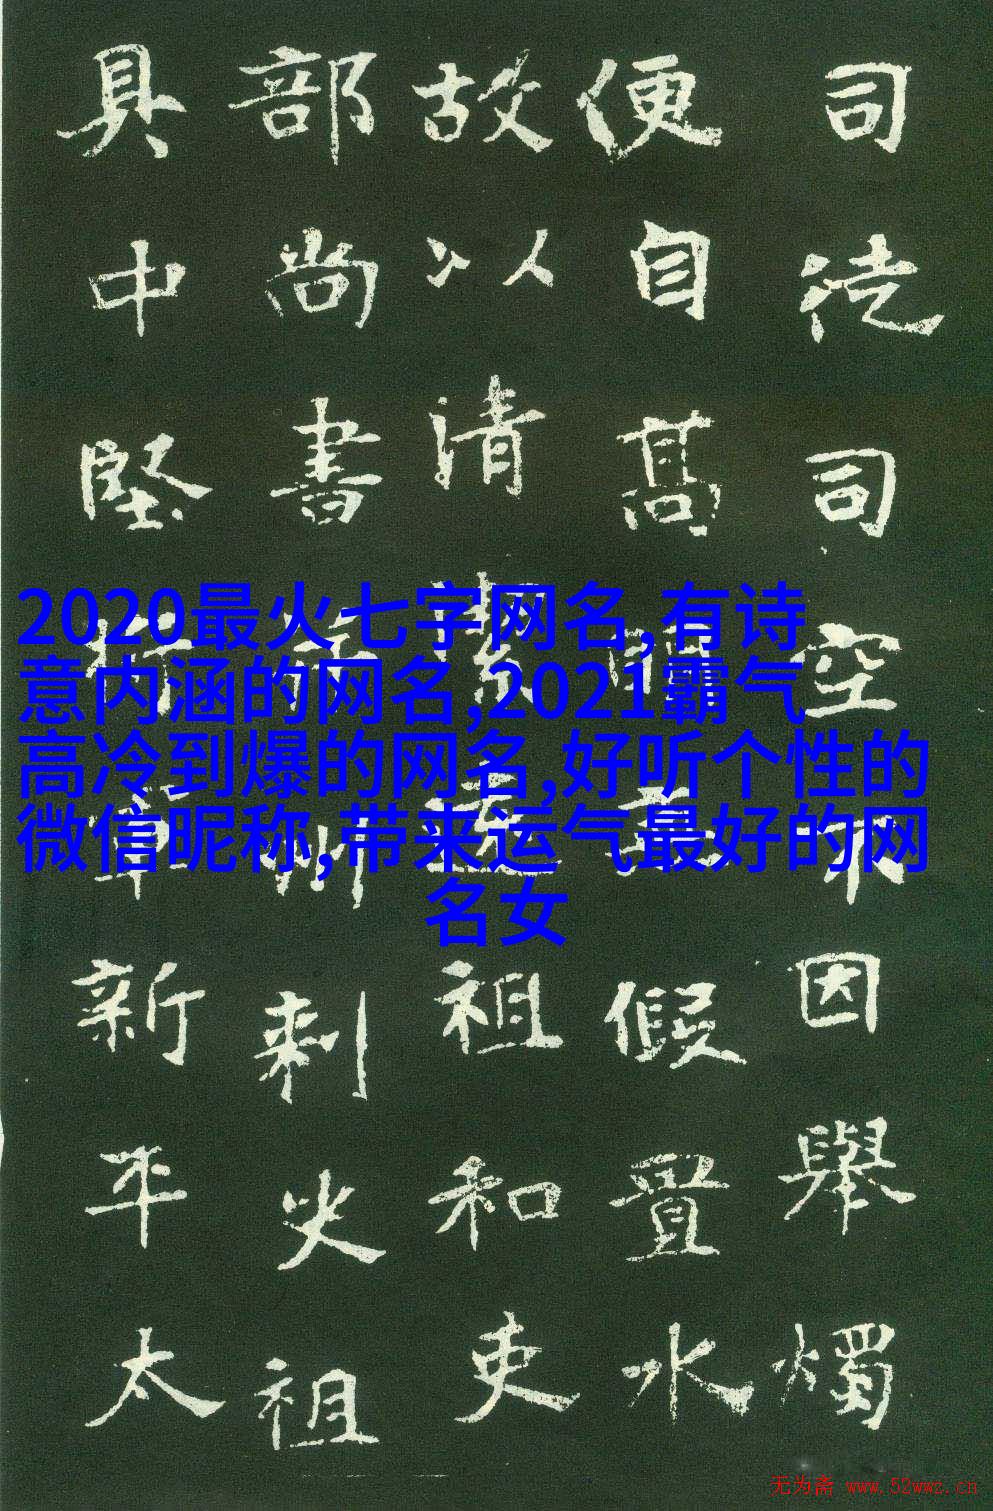 司徒司空
因舉燭
便自高
假置水
故以清
祖和吏
部尚書
刺史祖
具中堅
新平太
2020最火七字网名,有诗
意内涵的网名,2021霸气
高冷到爆的网名,好听个性的
微信昵称,带来运气最好的网
名女
无为斋 www.52wwz.cn